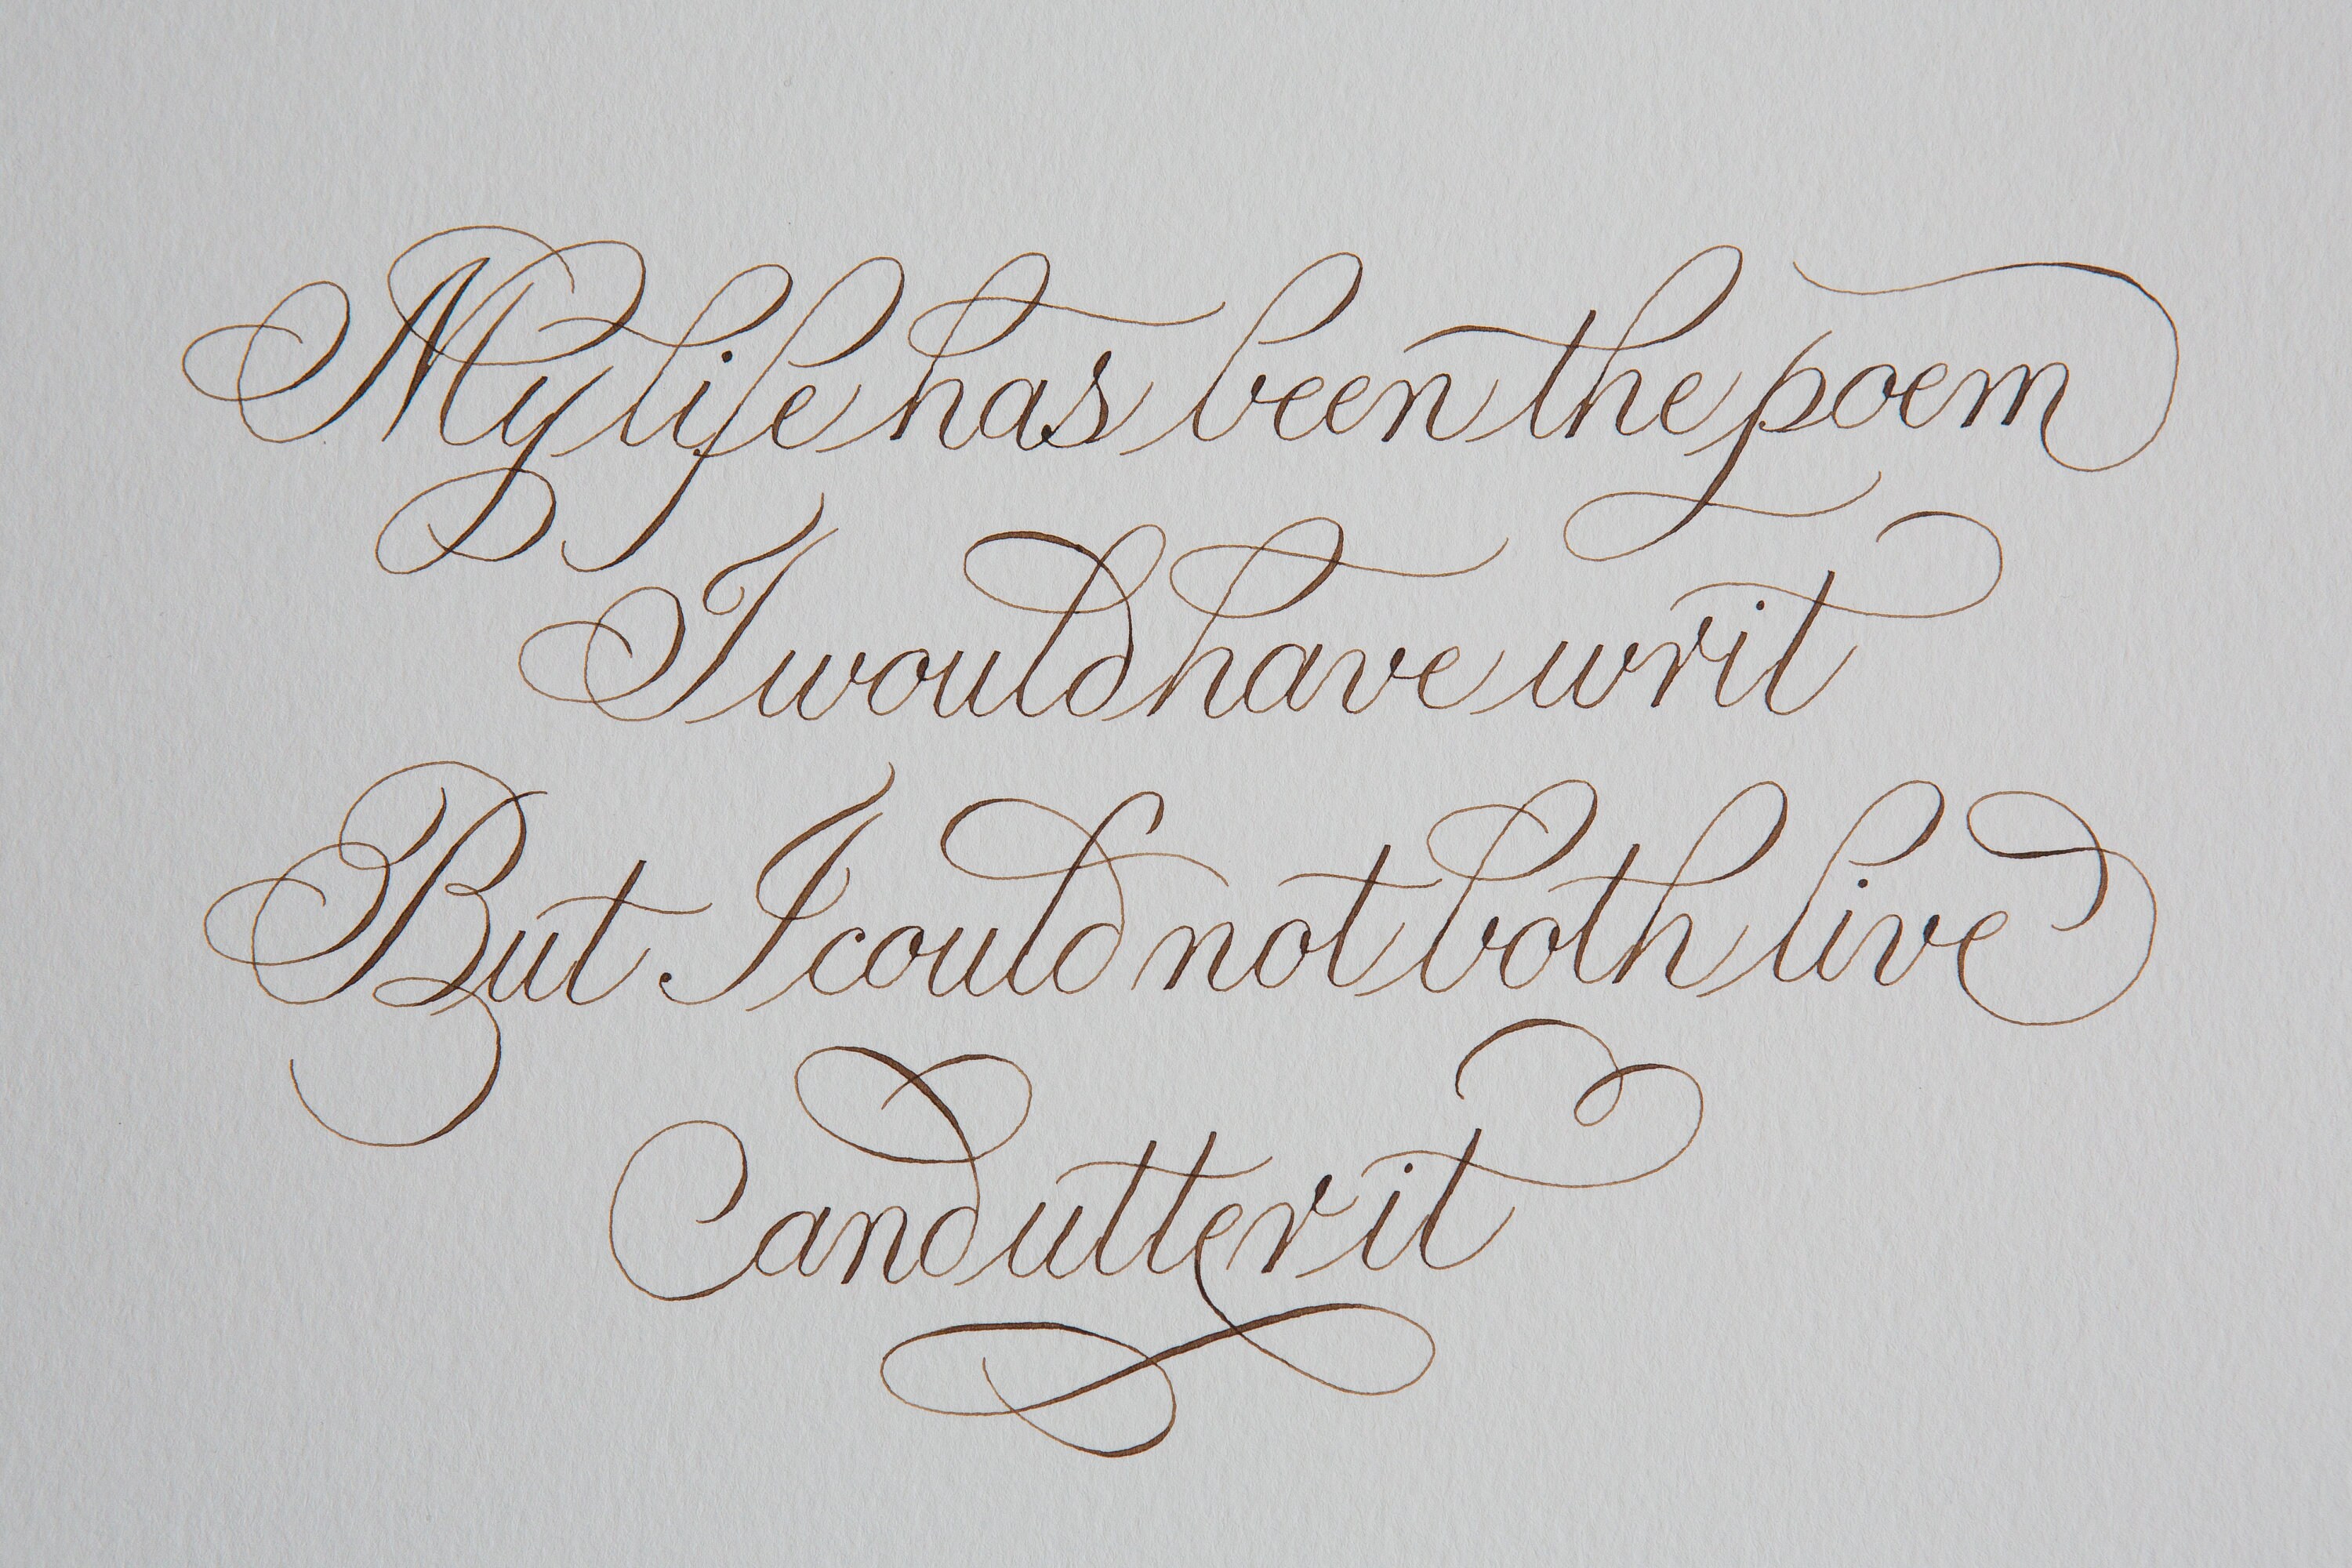 My life has been the poem
I would have writ
But I could not both live
and utter it